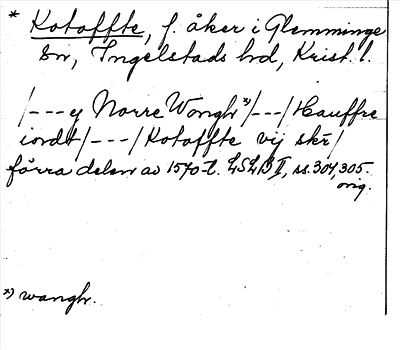 * Kotoffte, f. åker i Glemminge
sn, Ingelstads hd, Krist. l.
/---ej Norre Wongh *)/---/Hauffre
iordt/---/Kotoffte vij skr̄/
förra delen av 1570-t. LSLB II, ss. 304, 305.
orig.
*) wangh.